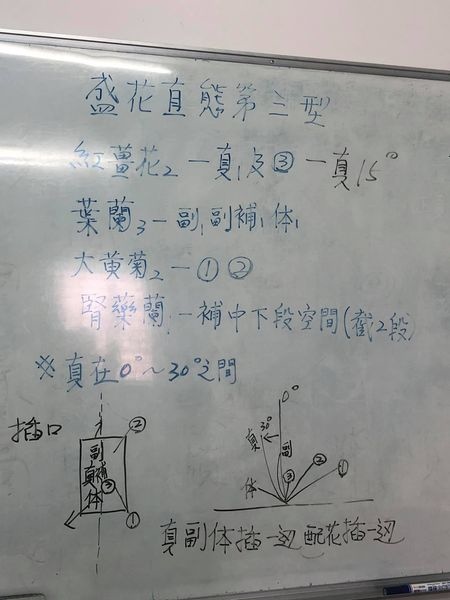 盛花直態第三型
紅薑花2 一真1及③ 一真15°
葉蘭3 一副1副補1体1
大黄菊2 一①②
腎藥蘭1 一補中下段空間(截2段)
※真在0°~30°之間
插口
②
副
真補
③
体
①
0°
真 30° 副
② ①
体 ③
真副体插一边配花插一边